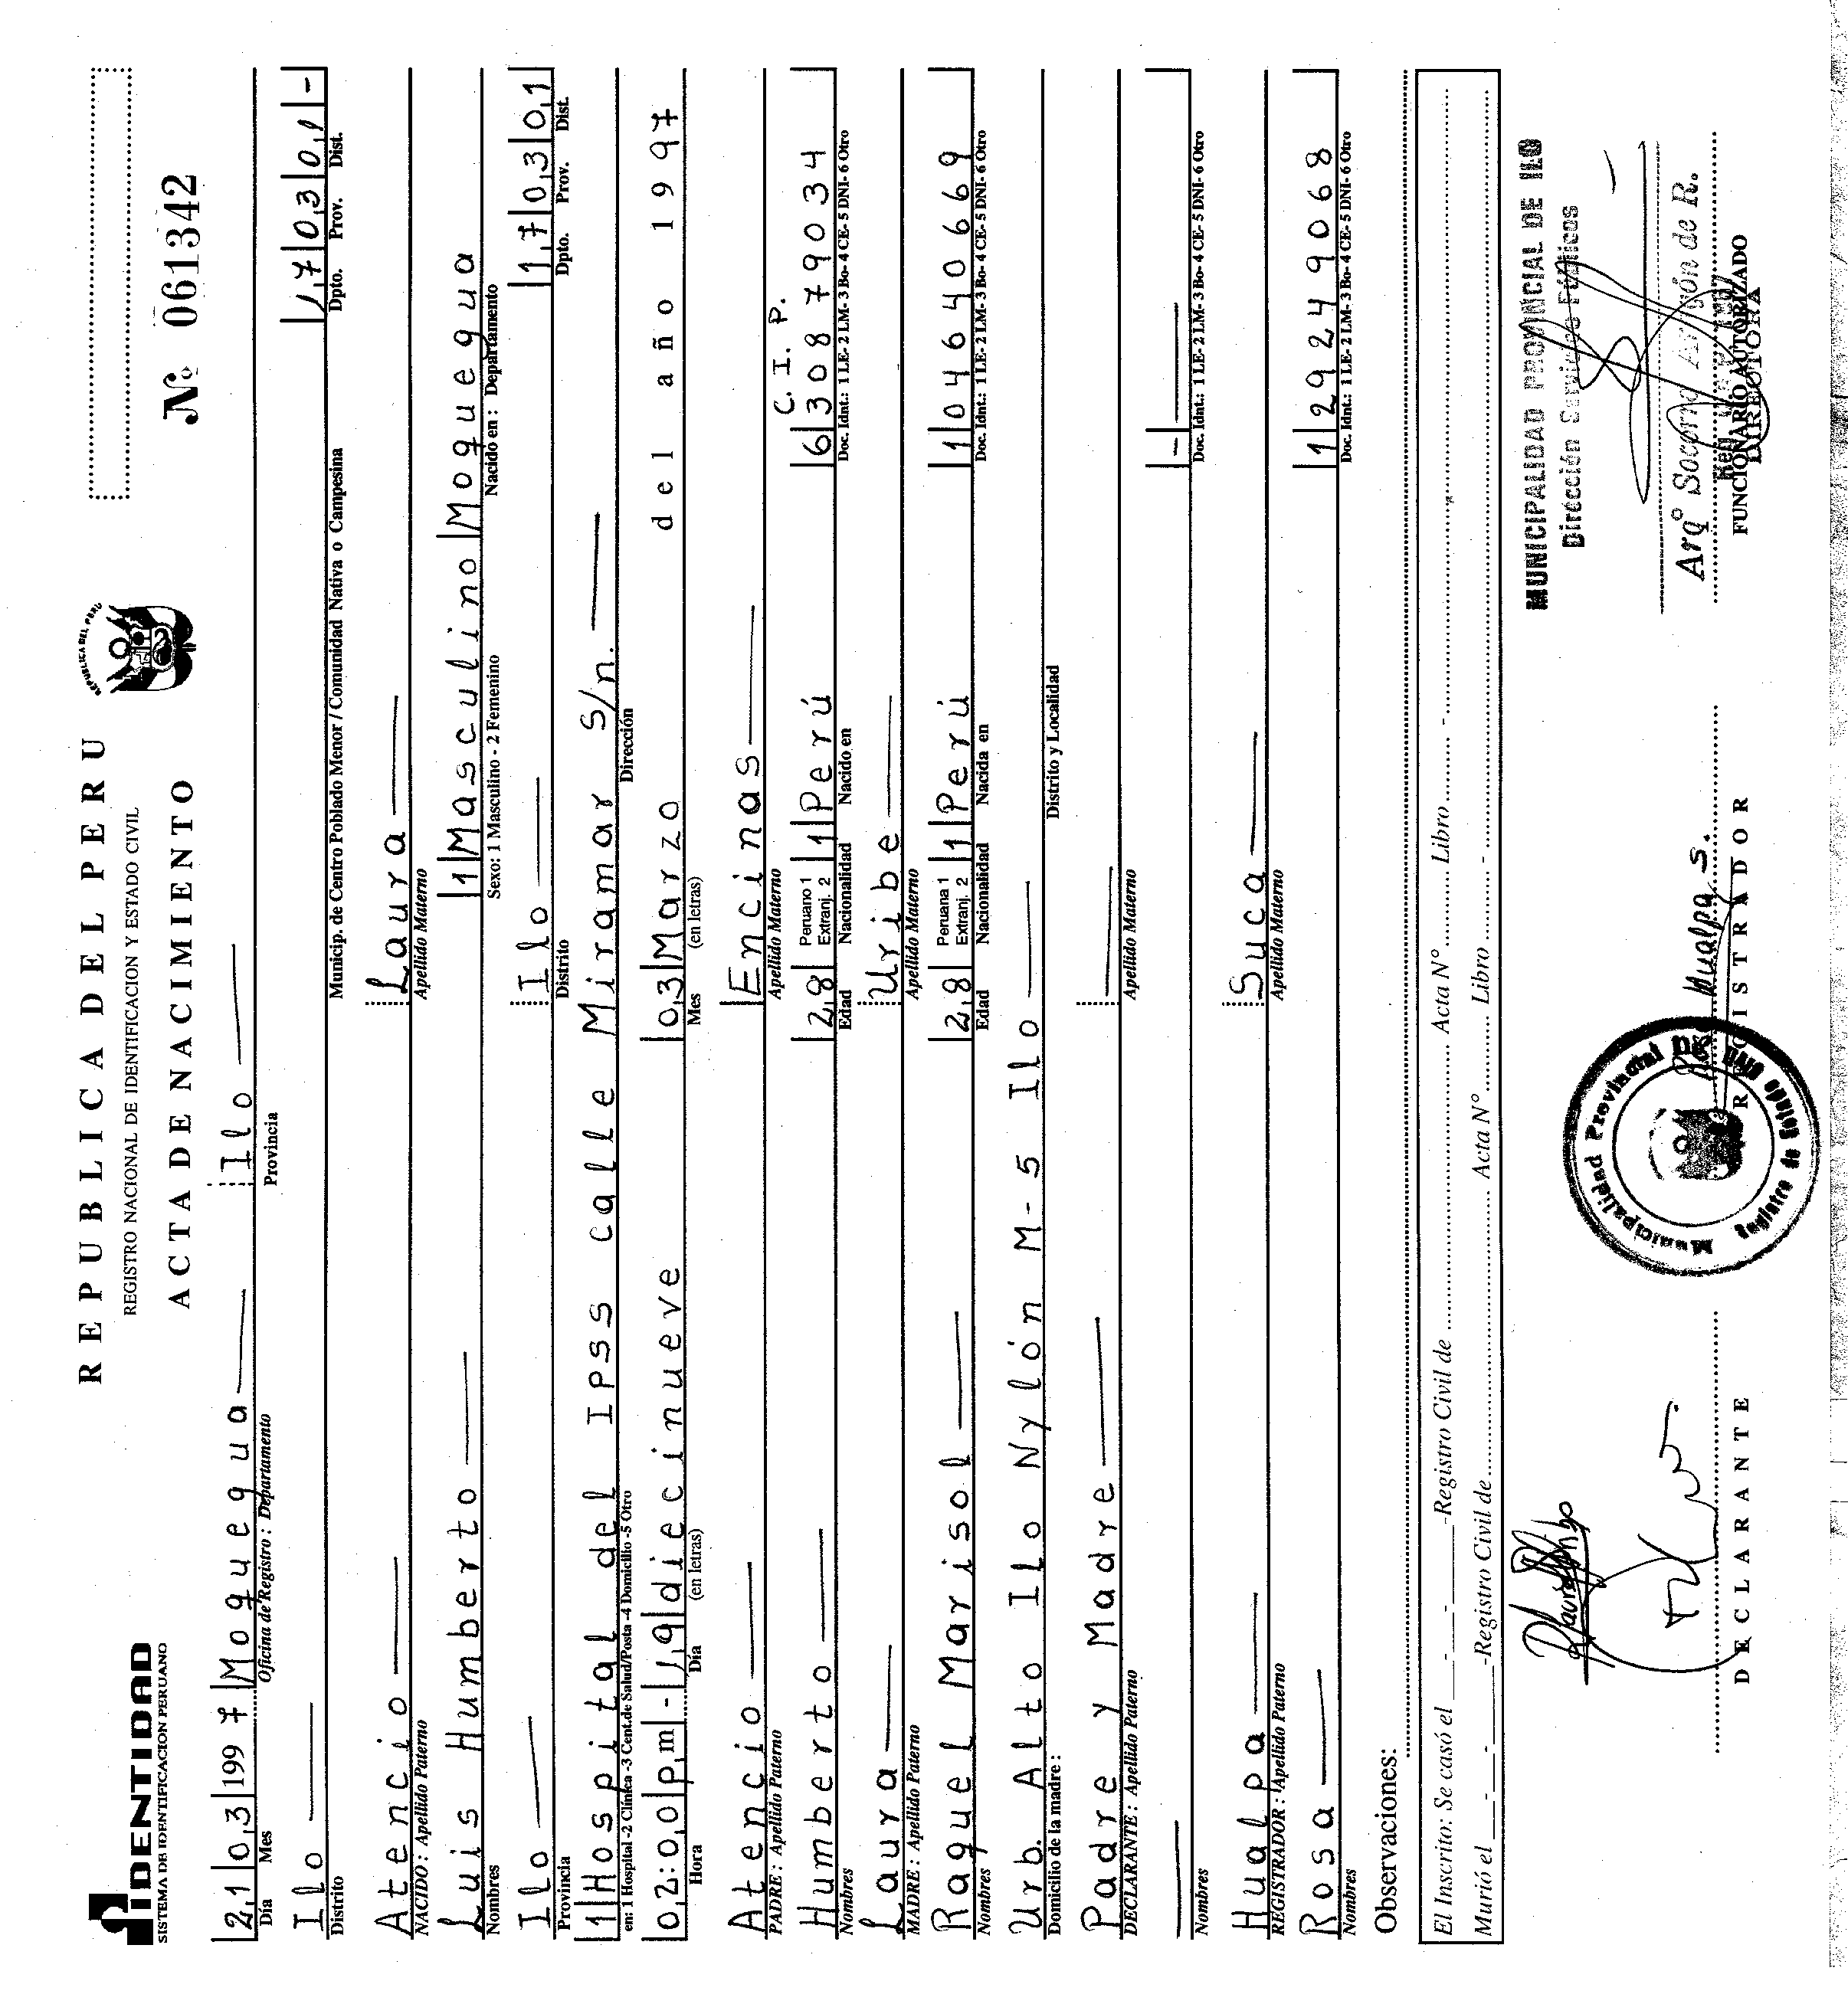 IDENTIDAD
SISTEMA DE IDENTIFICACION PERUANO
REPUBLICA DEL PERU
REGISTRO NACIONAL DE IDENTIFICACION Y ESTADO CIVIL
ACTA DE NACIMIENTO
REPUBLICA DEL PERU
Nº 061342
21 03 1997 Moquegua Ilo
Día Mes Oficina de Registro : Departamento Provincia
Ilo 17 03 01 -
Distrito Municip. de Centro Poblado Menor / Comunidad Nativa o Campesina Dpto. Prov. Dist.
Atencio Laura
NACIDO : Apellido Paterno Apellido Materno
Luis Humberto 1 Masculino Moquegua
Nombres Sexo: 1 Masculino - 2 Femenino Nacido en : Departamento
Ilo Ilo 17 03 01
Provincia Distrito Dpto. Prov. Dist.
1 Hospital del IPSS calle Miramar S/n.
en: 1 Hospital -2 Clínica -3 Cent.de Salud/Posta -4 Domicilio -5 Otro Dirección
02:00 p.m - 19 diecinueve 03 Marzo del año 1997
Hora Día (en letras) Mes (en letras)
Atencio Encinas
PADRE : Apellido Paterno Apellido Materno
C. I. P.
Humberto 28 Peruano 1 Extranj. 2 1 Perú 6 30879034
Nombres Edad Nacionalidad Nacido en Doc. Idnt.: 1 LE- 2 LM- 3 Bo- 4 CE- 5 DNI- 6 Otro
Laura Uribe
MADRE : Apellido Paterno Apellido Materno
Raquel Marisol 28 Peruana 1 Extranj. 2 1 Perú 1 04640669
Nombres Edad Nacionalidad Nacida en Doc. Idnt.: 1 LE- 2 LM- 3 Bo- 4 CE- 5 DNI- 6 Otro
Urb. Alto Ilo Nylón M-5 Ilo
Domicilio de la madre : Distrito y Localidad
Padre y Madre
DECLARANTE : Apellido Paterno Apellido Materno
-
Nombres Doc. Idnt.: 1 LE- 2 LM- 3 Bo- 4 CE- 5 DNI- 6 Otro
Hualpa Suca
REGISTRADOR : Apellido Paterno Apellido Materno
Rosa 1 29249068
Nombres Doc. Idnt.: 1 LE- 2 LM- 3 Bo- 4 CE- 5 DNI- 6 Otro
Observaciones:
El Inscrito: Se casó el - - Registro Civil de Acta N° Libro -
Murió el - - Registro Civil de Acta N° Libro -
MUNICIPALIDAD PROVINCIAL DE ILO
Dirección Servicios Públicos
Hualpa S.
Municipalidad Provincial De
Registro de Estado Civil
Arqº Socorro de R.
DIRECTORA
DECLARANTE REGISTRADOR FUNCIONARIO AUTORIZADO